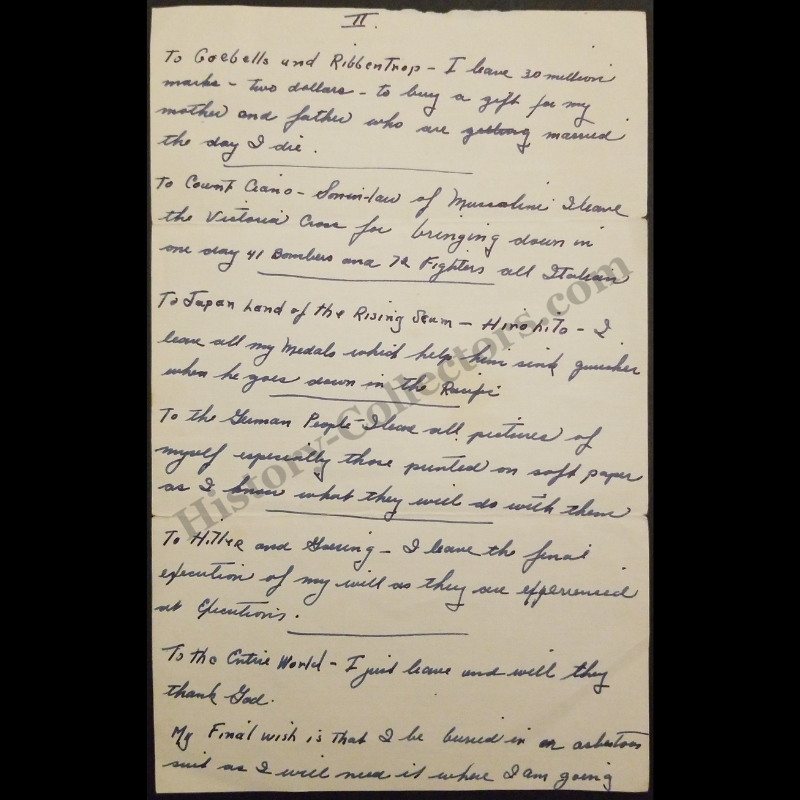 II.
To Goebells and RibbenTrop - I leave 30 million
marks - two dollars - to buy a gift for my
mother and father who are getting married
the day I die.
To Count Ciano - Son in-law of Mussolini I leave
the Victoria Cross for bringing down in
one day 41 Bombers and 72 Fighters all Italian
To Japan Land of the Rising Scum - Hirohito - I
leave all my Medals which help him sink quicker
when he goes down in the Pacific
To the German People - I leave all pictures of
myself especially those printed on soft paper
as I know what they will do with them
To Hitler and Goering - I leave the final
execution of my will as they are experienced
at Executions.
To the Entire World - I just leave and will they
thank God.
My Final wish is That I be buried in an asbestos
suit as I will need it where I am going
History-Collectors.com